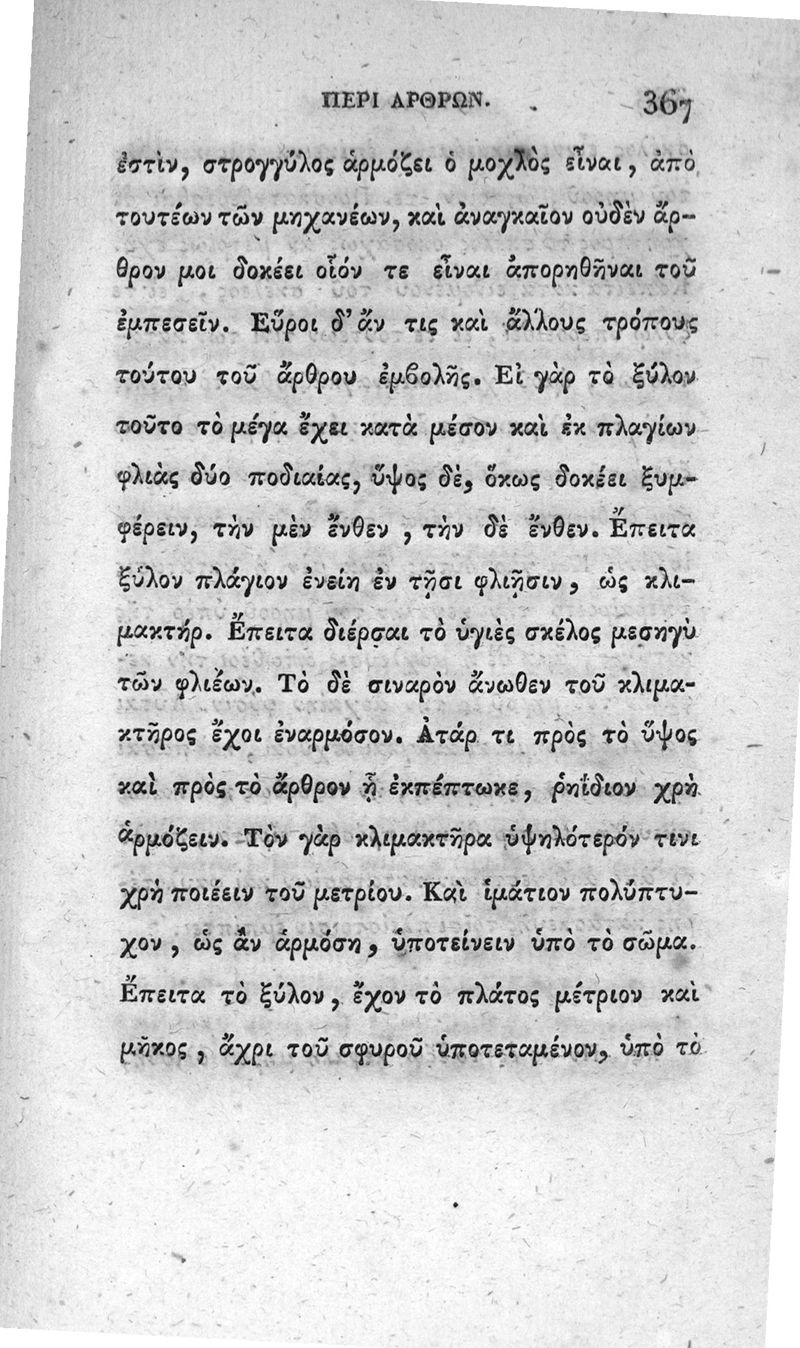 ΠΕΡΙ ΑΡΘΡΩΝ. 367
ἐστὶν, στρογγύλος ἁρμόζει ὁ μοχλὸς εἶναι, ἀπὸ
τουτέων τῶν μηχανέων, καὶ ἀναγκαῖον οὐδὲν ἄρ-
θρον μοι δοκέει οἷόν τε εἶναι ἀπορηθῆναι τοῦ
ἐμπεσεῖν. Εὕροι δ' ἄν τις καὶ ἄλλους τρόπους
τούτου τοῦ ἄρθρου ἐμβολῆς. Εἰ γὰρ τὸ ξύλον
τοῦτο τὸ μέγα ἔχει κατὰ μέσον καὶ ἐκ πλαγίων
φλιὰς δύο ποδιαίας, ὕψος δὲ, ὅκως δοκέει ξυμ-
φέρειν, τὴν μὲν ἔνθεν, τὴν δὲ ἔνθεν. Ἔπειτα
ξύλον πλάγιον ἐνείη ἐν τῇσι φλιῇσιν, ὡς κλι-
μακτήρ. Ἔπειτα διέρσαι τὸ ὑγιὲς σκέλος μεσηγὺ
τῶν φλιέων. Τὸ δὲ σιναρὸν ἄνωθεν τοῦ κλιμα-
κτῆρος ἔχοι ἐναρμόσον. Ἀτάρ τι πρὸς τὸ ὕψος
καὶ πρὸς τὸ ἄρθρον ᾗ ἐκπέπτωκε, ῥηΐδιον χρὴ
ἁρμόζειν. Τὸν γὰρ κλιμακτῆρα ὑψηλότερόν τινι
χρὴ ποιέειν τοῦ μετρίου. Καὶ ἱμάτιον πολύπτυ-
χον, ὡς ἂν ἁρμόση, ὑποτείνειν ὑπὸ τὸ σῶμα.
Ἔπειτα τὸ ξύλον, ἔχον τὸ πλάτος μέτριον καὶ
μῆκος, ἄχρι τοῦ σφυροῦ ὑποτεταμένον, ὑπὸ τὸ